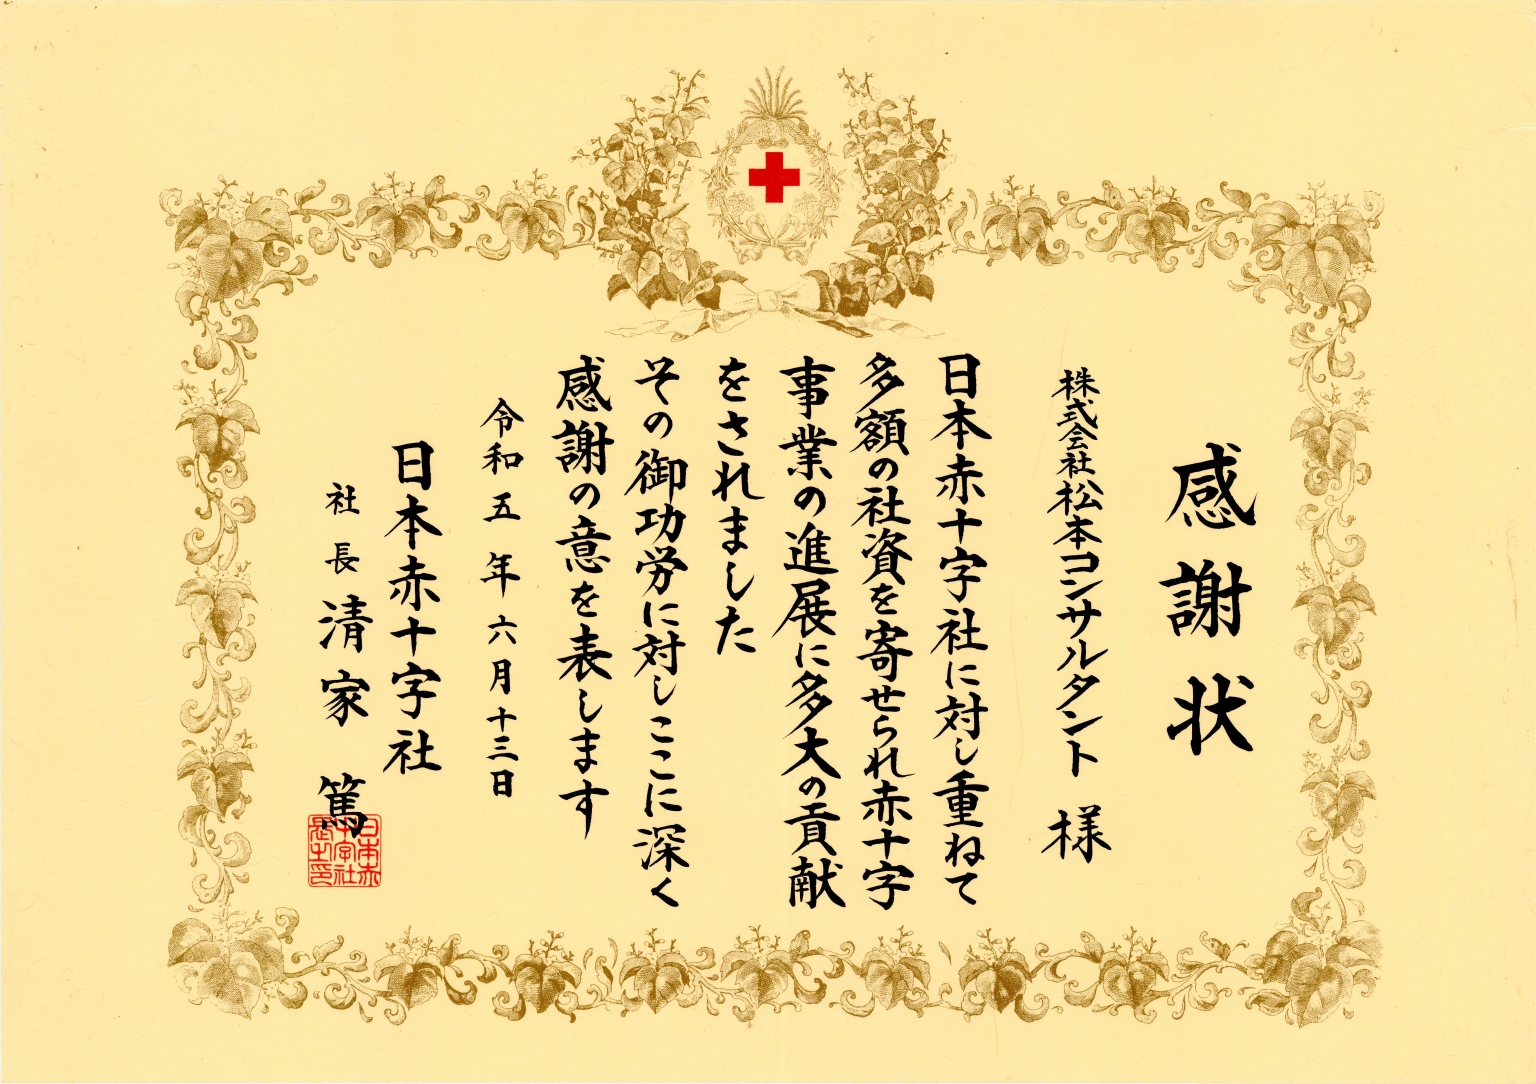 感謝状
株式会社松本コンサルタント 様
日本赤十字社に対し重ねて
多額の社資を寄せられ赤十字
事業の進展に多大の貢献
をされました
その御功労に対しここに深く
感謝の意を表します
令和五年六月十三日
日本赤十字社
社長 清家 篤
日本赤
十字社
長之印